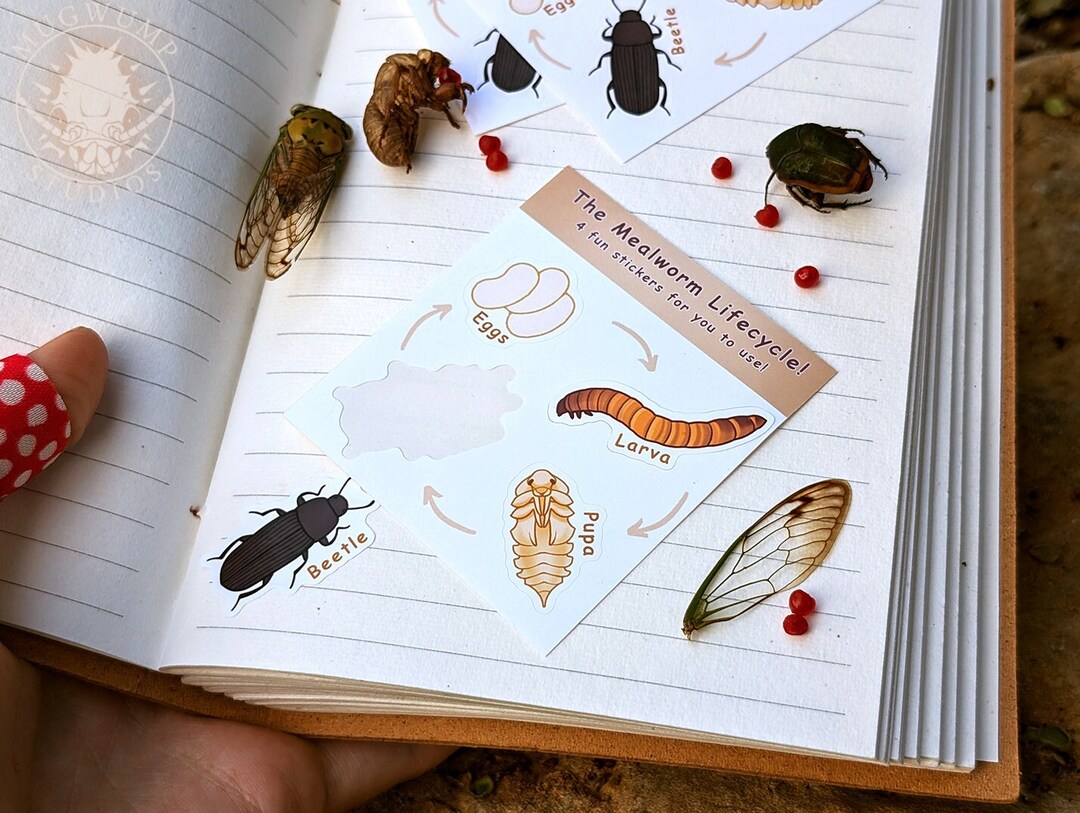 MUGWUMP
STUDIOS
Egg
Beetle
The Mealworm Lifecycle!
4 fun stickers for you to use!
Eggs
Larva
Pupa
Beetle